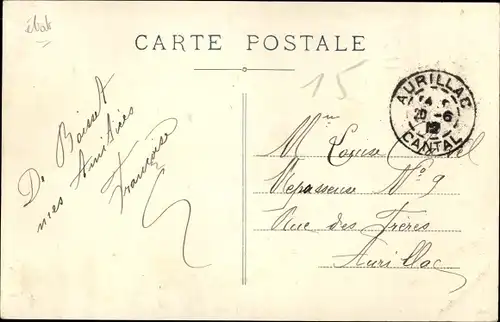 état
CARTE POSTALE
15
De Boisset
mes Amitiés
Françoise
AURILLAC
20 -6
12
CANTAL
Mme Louise
Repasseuse No 9
Rue des Frères
Aurillac